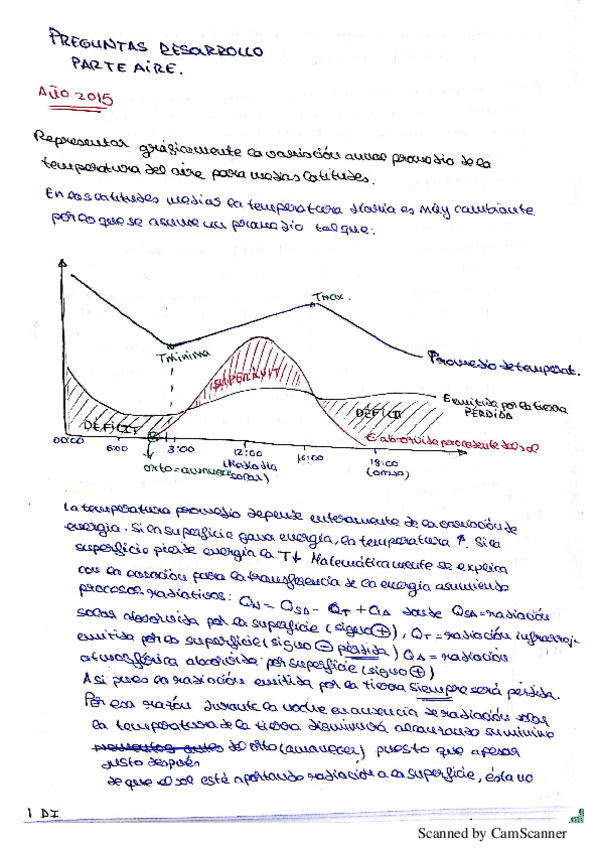 PREGUNTAS DESARROLLO
PARTE AIRE.
AÑO 2015
Representar gráficamente la variación anual promedio de la
temperatura del aire para medias latitudes.
En las latitudes medias la temperatura diaria es muy cambiante
por lo que se asume un promedio tal que:
Tmax.
Tminima
SUPERÁVIT
Promedio de temperat.
Emitida por la tierra
PÉRDIDA
DÉFICIT
DÉFICIT
E absorvida procedente del sol
00:00
6:00
3:00
12:00
(Mediodía
solar)
16:00
18:00
(ocaso)
orto=amanecer
La temperatura promedio depende enteramente de la variación de
energía. Si la superficie gana energía, la temperatura ↑. Si la
superficie pierde energía la T↓ Matemáticamente se explica
con la ecuación para la transferencia de la energía asumiendo
procesos radiativos: QN = QSA - QT + QA donde QSA = radiación
solar absorvida por la superficie (signo +), QT = radiación infrarroj.
emitida por la superficie (signo - pérdida) QA = radiación
atmosférica absorvida por superficie (signo +)
Así pues la radiación emitida por la tierra siempre será pérdida.
Por esa razón durante la noche en ausencia de radiación solar
la temperatura de la tierra disminuirá, alcanzando su mínimo
momentos antes del orto (amanecer) puesto que apesar
justo después
de que el sol está aportando radiación a la superficie, ésta no
1 DI
Scanned by CamScanner